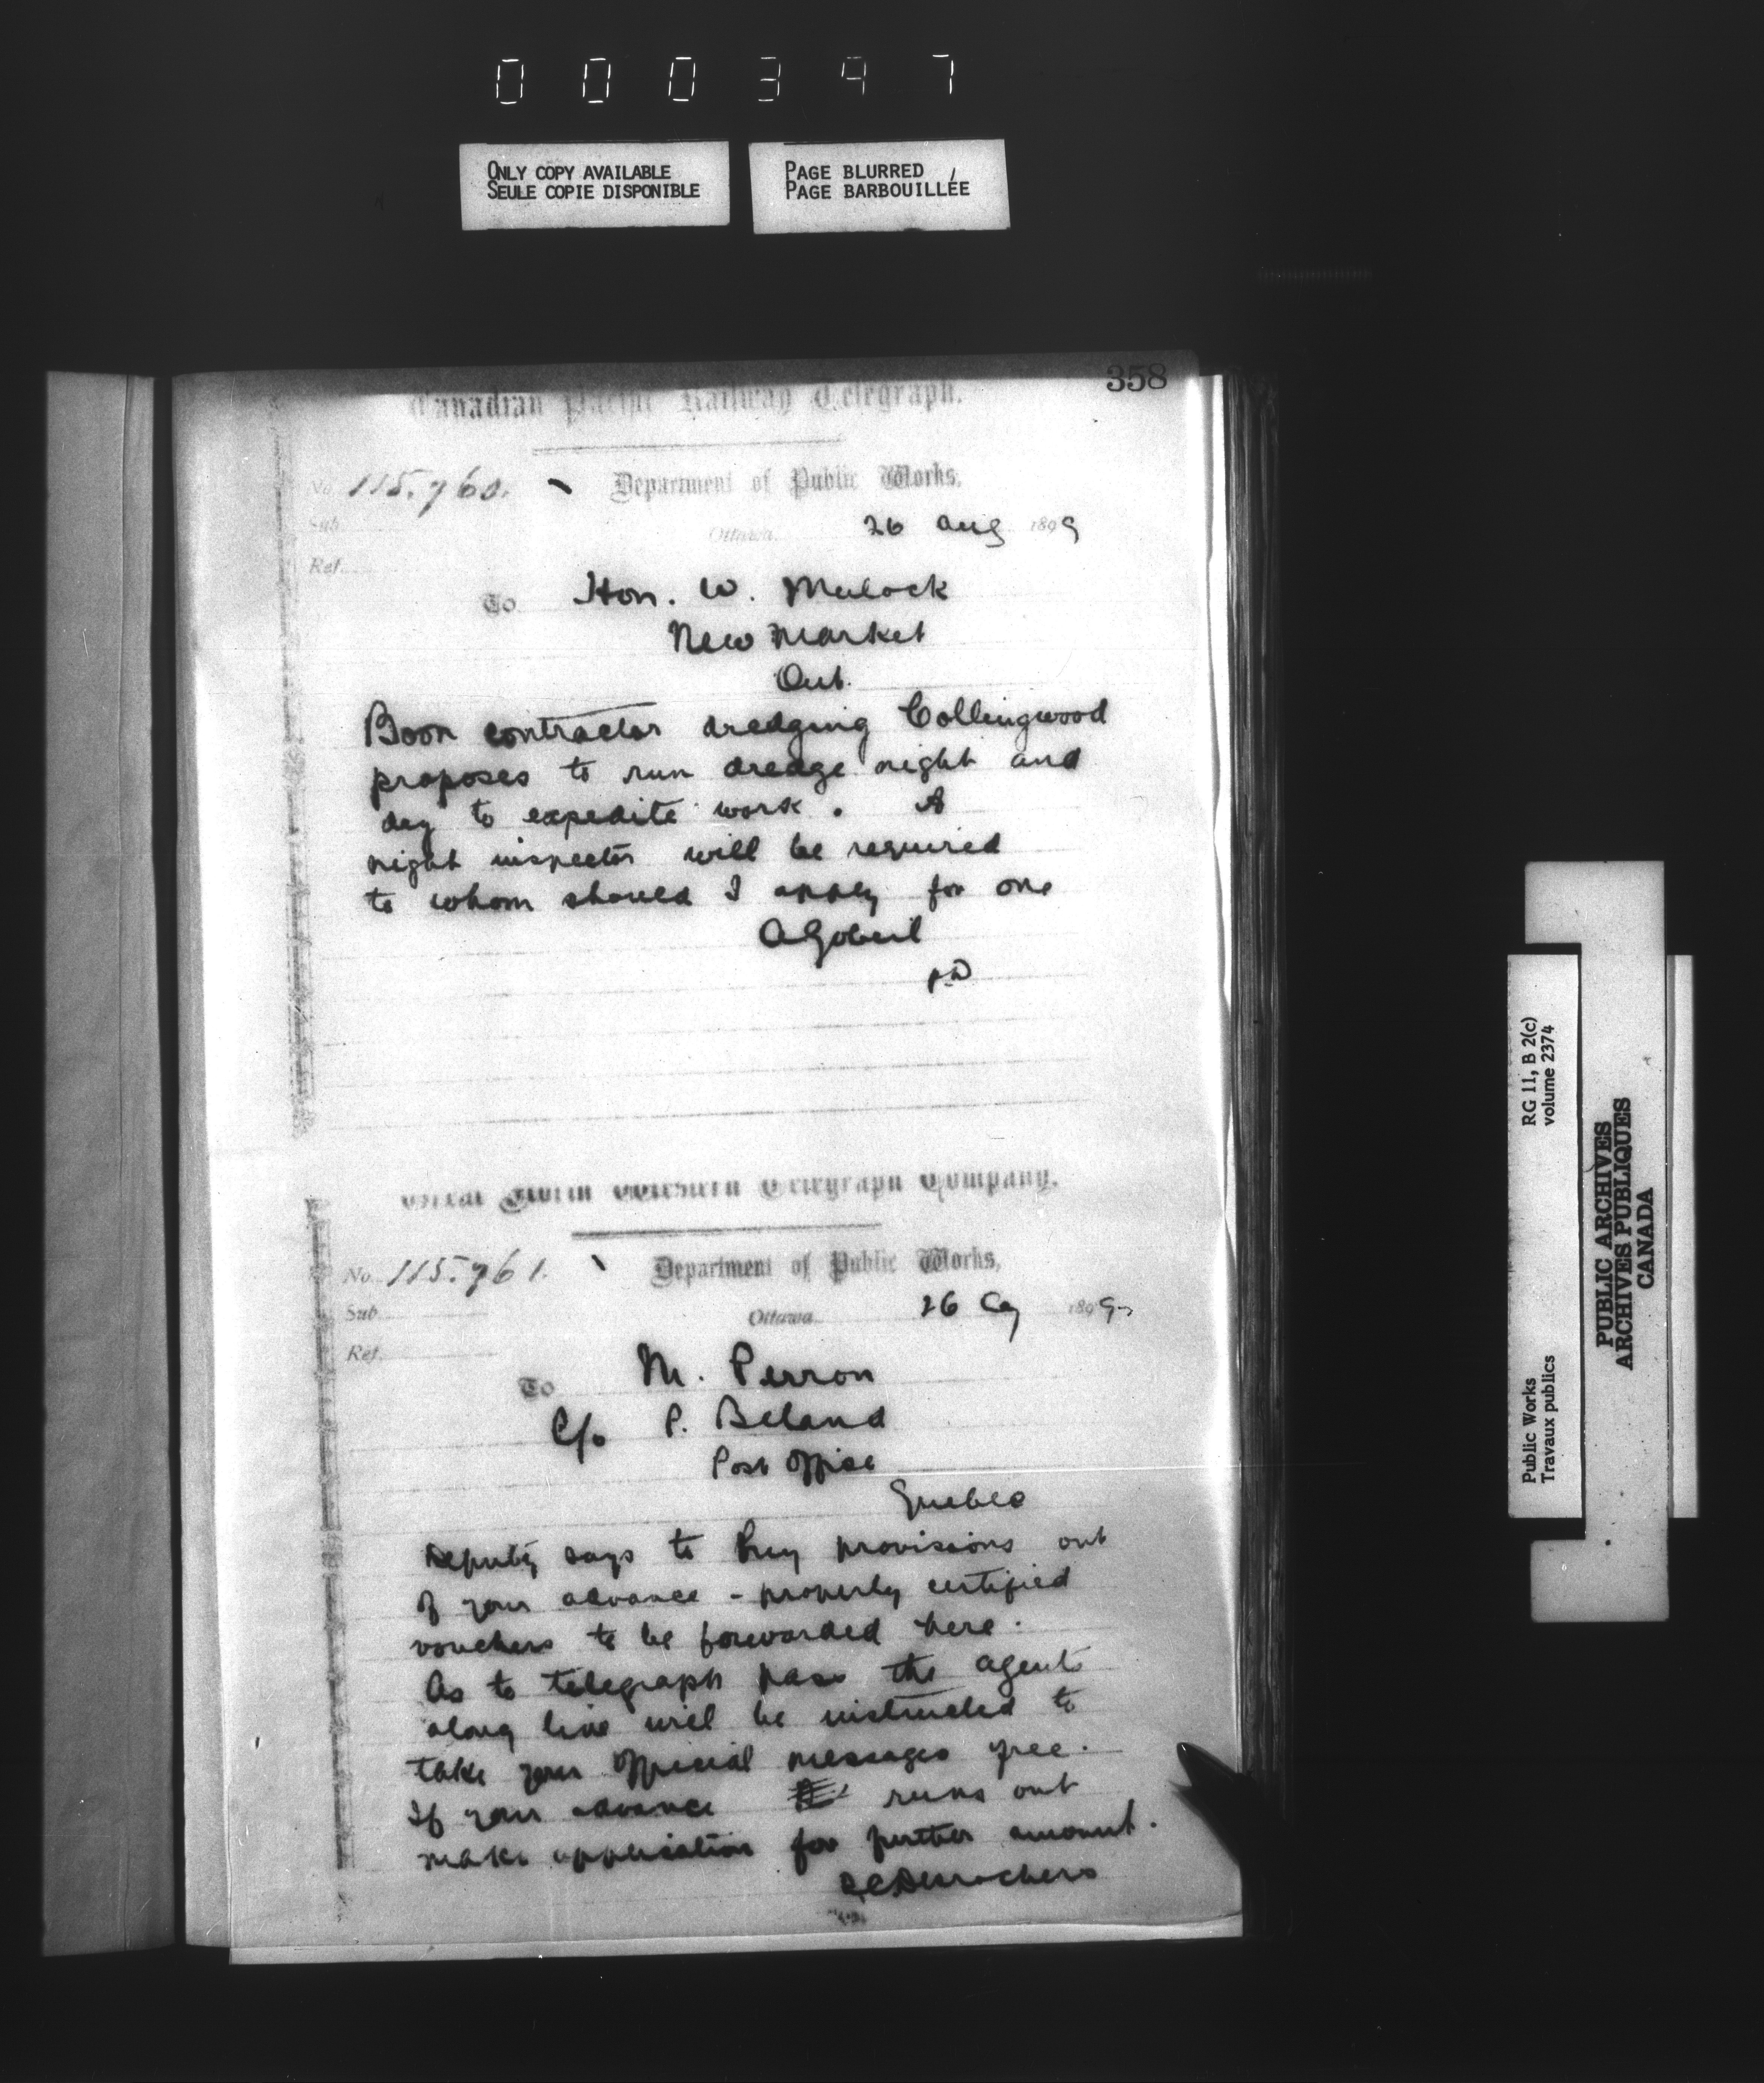 000347
ONLY COPY AVAILABLE
SEULE COPIE DISPONIBLE
PAGE BLURRED
PAGE BARBOUILLÉE
358
Canadian Pacific Railway Telegraph.
No. 115.760.
Department of Public Works,
Sub
Ottawa 26 Aug 1899
Ref.
To Hon. W. Mulock
New Market
Ont.
Boon contractor dredging Collingwood
proposes to run dredge night and
day to expedite work. A
night inspector will be required
to whom should I apply for one
A Gobeil
Great North Western Telegraph Company.
No. 115.761.
Department of Public Works,
Sub
Ottawa 26 1899
Ref.
To M. Perron
C/o P. Beland
Post Office
Quebec
Deputy says to buy provisions out
of your advance - properly certified
vouchers to be forwarded here.
As to telegraph pass the agents
along line will be instructed to
take your official messages free.
If your advance runs out
make application for further amount.
Desrochers
RG 11, B 2(c)
volume 2374
Public Works
Travaux publics
PUBLIC ARCHIVES
ARCHIVES PUBLIQUES
CANADA